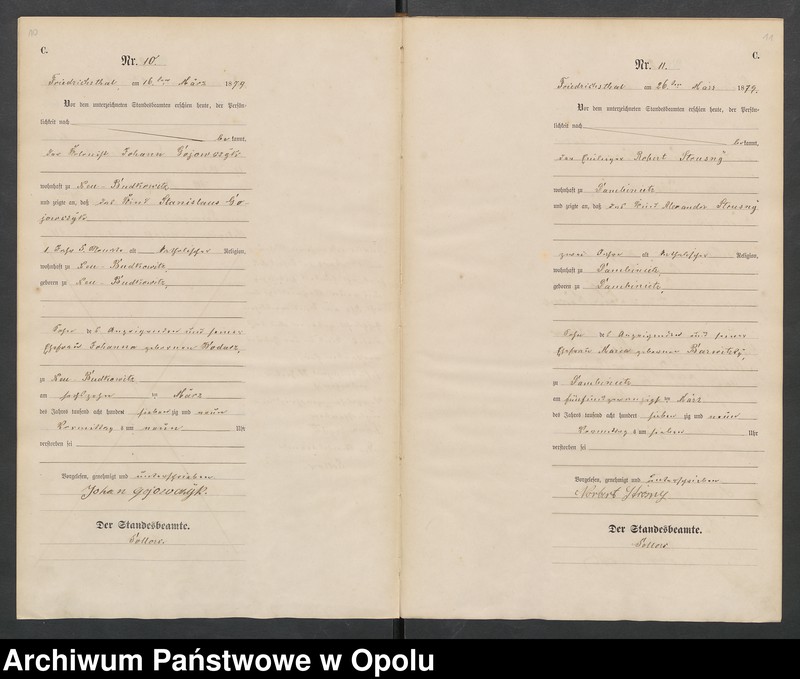 C.
Nr. 10.
Friedrichsthal am 16ten März 1879.
Vor dem unterzeichneten Standesbeamten erschien heute, der Persön-
lichkeit nach
be kannt,
der Kolonist Johann Gojowczyk
wohnhaft zu Neu-Budkowitz
und zeigte an, daß das Kind Stanislaus Go-
jowczyk
1 Jahr 5 Monate alt katholischer Religion,
wohnhaft zu Neu-Budkowitz,
geboren zu Neu-Budkowitz,
Sohn des Anzeigenden und seiner
Ehefrau Johanna geborenen
zu Neu-Budkowitz
am sechszehn ten März
des Jahres tausend acht hundert sieben zig und neun
Vormittag s um neun Uhr
verstorben sei
Vorgelesen, genehmigt und unterschrieben
Johan Gojowczyk.
Der Standesbeamte.
C.
Nr. 11.
Friedrichsthal am 26ten März 1879.
Vor dem unterzeichneten Standesbeamten erschien heute, der Persön-
lichkeit nach
be kannt,
der Robert
wohnhaft zu
und zeigte an, daß das Kind Alexander
zwei Jahr alt katholischer Religion,
wohnhaft zu
geboren zu
Sohn des Anzeigenden und seiner
Ehefrau Maria geborenen
zu
am fünfundzwanzigsten März
des Jahres tausend acht hundert sieben zig und neun
Vormittag s um sieben Uhr
verstorben sei
Vorgelesen, genehmigt und unterschrieben
Norbert
Der Standesbeamte.
Archiwum Państwowe w Opolu